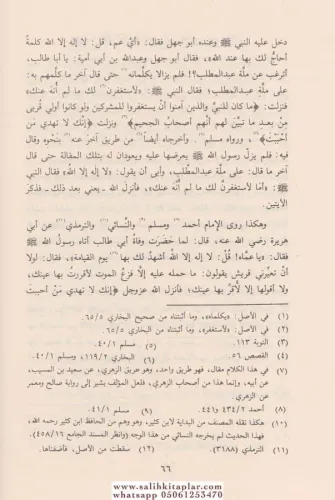 دخل عليه النبي ﷺ وعنده أبو جهل فقال: «أيْ عم، قل: لا إله إلا الله كلمةً
أحاجُّ لك بها عند الله»، فقال أبو جهل وعبدالله بن أبي أمية: يا أبا طالب،
أترغب عن ملَّة عبدالمطلب؟! فلم يزالا يكلِّمانه حتى قال آخر ما كلَّمهم به:
على ملَّة عبدِالمطلب؛ فقال النبي ﷺ: «لأستغفرنَّ لك ما لم أُنْهَ عنك»
فنزلت: ﴿ما كان للنبيِّ والذين آمنوا أن يستغفروا للمشركين ولو كانوا أولي قُربى
مِنْ بعـد ما تبيَّن لهم أنَّهم أصحـاب الجحيـم﴾ ونزلت ﴿إنـك لا تهدي مَن
أحبَبْتَ﴾، ورواه مسلم. وأخرجاه أيضاً من طريقٍ آخرَ عنه بنَحْوه وقال
فيه: فلم يَزلْ رسول الله ﷺ يعرضها عليه ويعودان له بتلك المقالة حتى قال
آخر ما قال: على ملَّة عبدِالمطَّلب، وأبى أن يقول: «لا إله إلا الله» فقال النبي
ﷺ: «أما لأستغفرنَّ لك ما لم أُنهَ عنك»، فأنزل الله ـ يعني بعد ذلك ـ فذكَرَ
الآيتين.
وهكذا روى الإمام أحمد ومسلم والنَّسائي والترمذي عن أبي
هريرة رضي الله عنه، قال: لما حَضَرَت وفاةُ أبي طالب أتاه رسولُ الله ﷺ
فقال: «يا عمَّاه! قُلْ: لا إله إلا اللهُ أشهدُ لك بها يوم القيامة»، فقال: لولا
أنْ تعيِّرني قريش يقولون: ما حمله عليه إلَّا فزَعُ الموت لأقررتُ بها عينَك،
ولا أقولها إلا لأُقرَّ بها عينك؛ فأنزل الله عزوجل ﴿إنك لا تهدي مَنْ أحببتَ
(١) في الأصل: «يكلماه»، وما أثبتناه من صحيح البخاري ٦٥/٥.
(٢) في الأصل: «لأستغفره»، وما أثبتناه من البخاري ٦٥/٥.
(٣) التوبة ١١٣.
(٤) القصص ٥٦.
(٥) مسلم ٤٠/١.
(٦) البخاري ١١٩/٢، ومسلم ٤٠/١.
(٧) في هذا الكلام مقال، فهو طريق واحد، وهو طريق الزهري، عن سعيد بن المسيب،
عن أبيه، وإنما هذا من أصحاب الزهري، فلعل المؤلف يشير إلى رواية صالح ومعمر
عن الزهري.
(٨) أحمد ٤٣٤/٢ و٤٤١.
(٩) مسلم ٤١/١.
(١٠) هكذا نقله المصنف من البداية لابن كثير، وهو وهم من الحافظ ابن كثير رحمه الله،
فهذا الحديث لم يخرجه النسائي من هذا الوجه (وانظر المسند الجامع ٤٥٨/١٦).
(١١) الترمذي (٣١٨٨).
(١٢) سقطت من الأصل، فأضفناها.
٦٦
www.salihkitaplar.com
whatsapp 05061253470